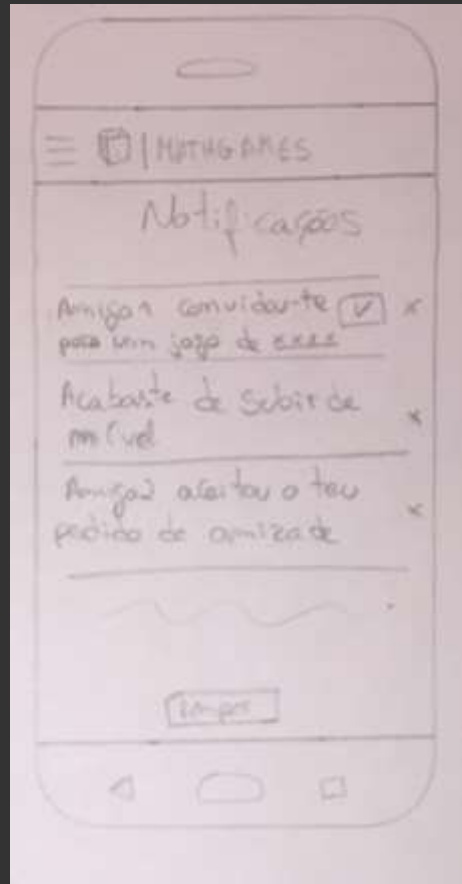 | MATHGAMES
Notificações
Amigo1 convidou-te ✓ x
para um jogo de xxxx
Acabaste de subir de
nível x
Amigo2 aceitou o teu
pedido de amizade x
limpar